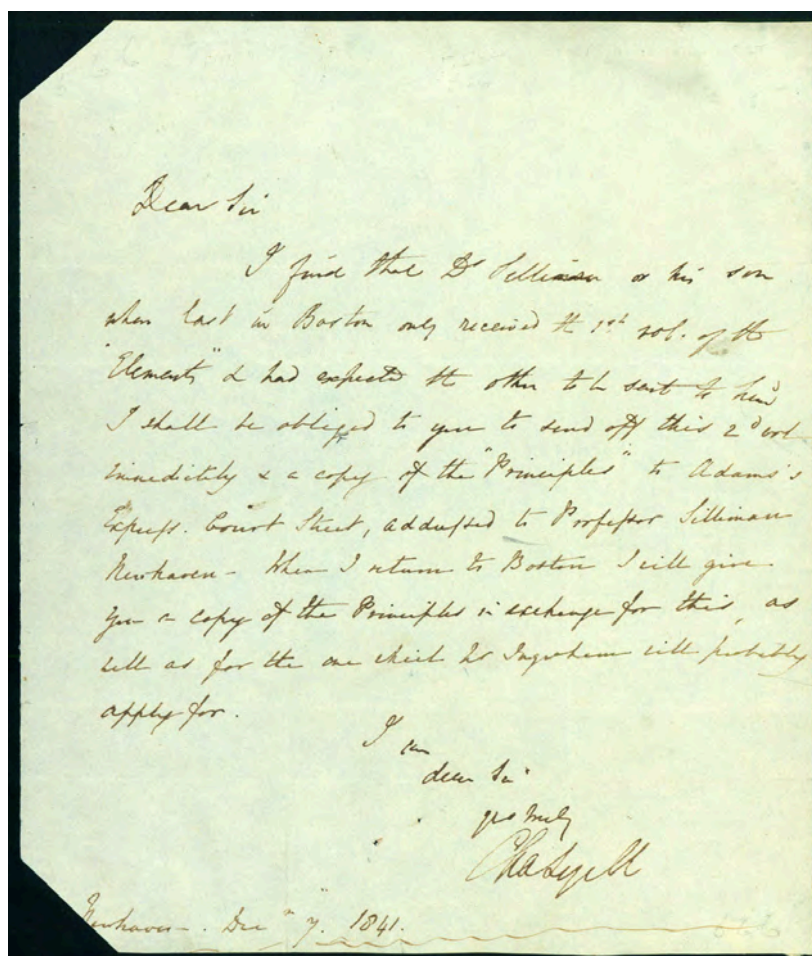 Dear Sir
I find that Dr Silliman or his son
when last in Boston only received the 1st vol. of the
"Elements" & had expected the other to be sent to him
I shall be obliged to you to send off this 2d vol
immediately & a copy of the "Principles" to Adams's
Express. Court Street, addressed to Professor Silliman
Newhaven - When I return to Boston I will give
you a copy of the Principles in exchange for this, as
well as for the one which Mr Ingraham will probably
apply for.
I am
dear Sir
yrs truly
Cha Lyell
Newhaven - . Decr 7. 1841.